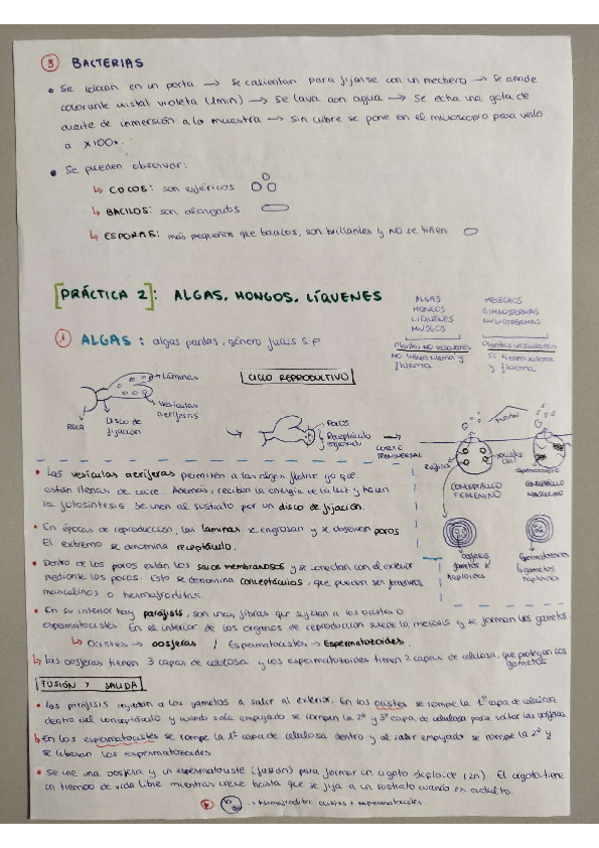 ③ BACTERIAS
• Se colocan en un porta → Se calientan para fijarse con un mechero → Se añade
colorante cristal violeta (1min) → Se lava con agua → Se echa una gota de
aceite de inmersión a la muestra → Sin cubre se pone en el microscopio para verlo
a x100x.
• Se pueden observar:
↳ COCOS: son esféricos
↳ BACILOS: son alargados
↳ ESPORAS: más pequeños que bacilos, son brillantes y NO se tiñen
[PRÁCTICA 2]: ALGAS, HONGOS, LÍQUENES
ALGAS
HONGOS
LÍQUENES
MUSGOS
NO tienen xilema y
floema
HELECHOS
GIMNOSPERMAS
ANGIOSPERMAS
Plantas vasculares
SÍ tienen xilema
y floema
① ALGAS: algas pardas, género fucus S.P
Láminas
Vesículas
aeríferas
Disco de
fijación
CICLO REPRODUCTIVO
Poros
Receptáculo
CORTE
TRANSVERSAL
CONCEPTÁCULO
FEMENINO
CONCEPTÁCULO
MASCULINO
Oosferas
gametos ♀
haploides
Espermatozoides
gametos
haploides
• Las vesículas aeríferas permiten a las algas flotar ya que
están llenas de aire. Además, reciben la energía de la luz y hacen
la fotosíntesis. Se unen al sustrato por un disco de fijación.
• En épocas de reproducción, las láminas se engrosan y se observan poros
El extremo se denomina receptáculo.
• Dentro de los poros están los sacos membranosos y se conectan con el exterior
mediante los poros. Esto se denomina conceptáculos, que pueden ser femeninos
masculinos o hermafroditas.
• En su interior hay parafisis, son unas fibras que sujetan a los oocistes o
espermatocistes. En el interior de los órganos de reproducción sucede la meiosis y se forman los gametos
↳ Oocistes → oosferas / Espermatocistes → Espermatozoides.
↳ las oosferas tienen 3 capas de celulosa y los espermatozoides tienen 2 capas de celulosa, que protegen los
gametos
FUSIÓN Y SALIDA
• Las parafisis ayudan a los gametos a salir al exterior. En los oocistes se rompe la 1º capa de celulosa
dentro del conceptáculo y cuando sale empujado se rompen la 2º y 3º capa de celulosa para soltar las oosferas
↳ En los espermatocistes se rompe la 1º capa de celulosa dentro y al salir empujado se rompe la 2º y
se liberan los espermatozoides
• Se une una oosfera y un espermatocisto (fusión) para formar un cigoto diploide (2n). El cigoto tiene
un tiempo de vida libre mientras crece hasta que se fija a un sustrato cuando es adulto.
: hermafrodita: oocistes + espermatocistes